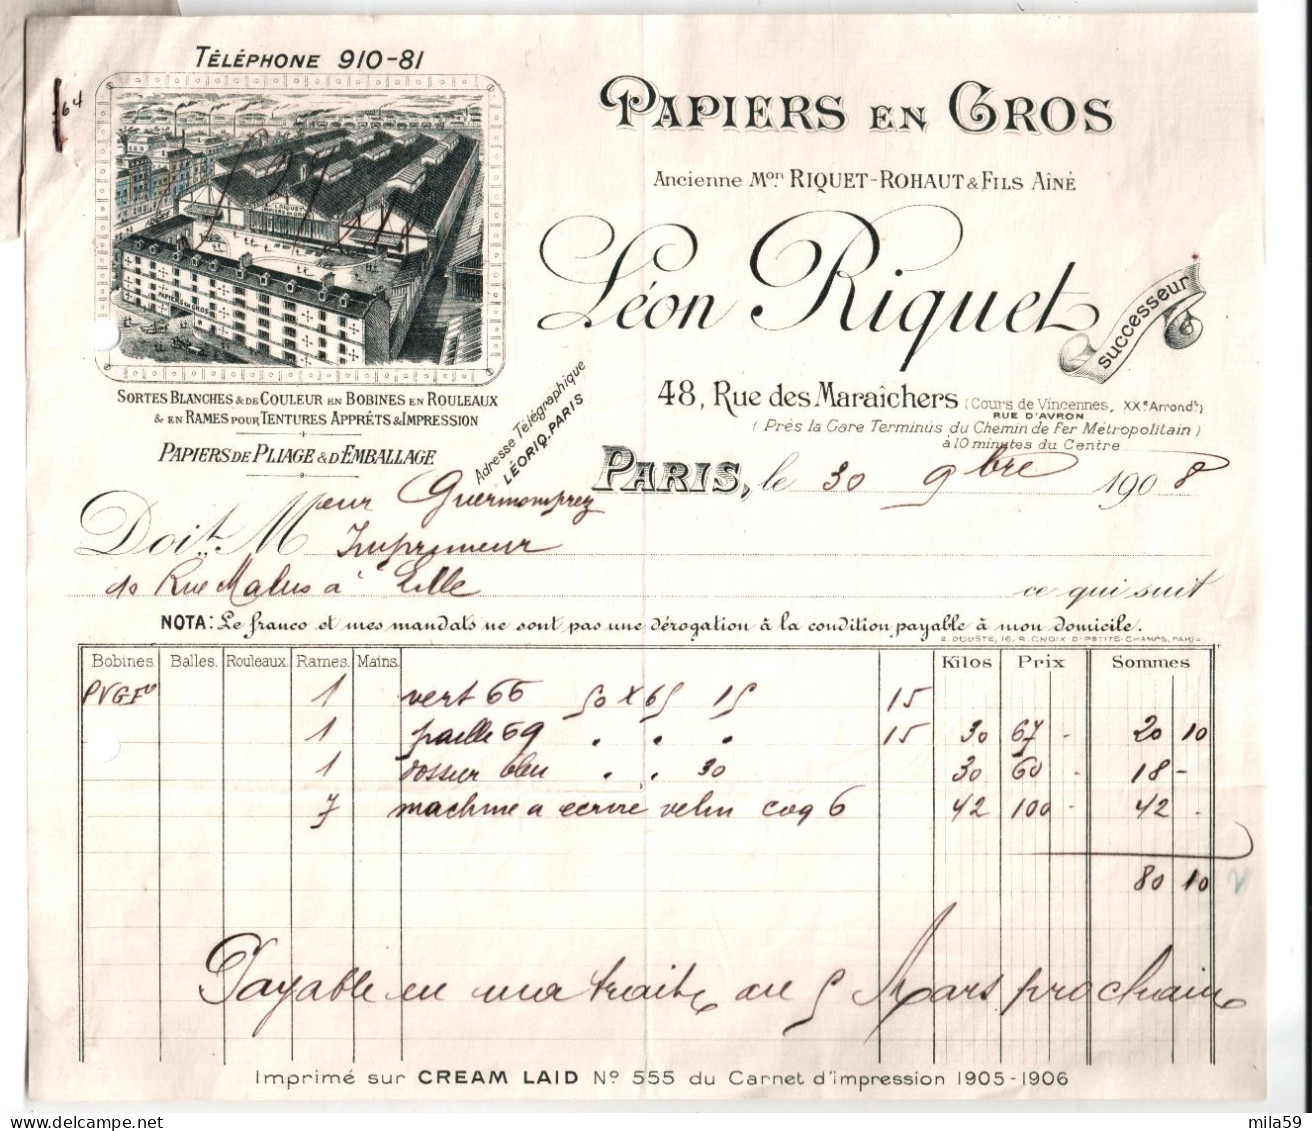 TÉLÉPHONE 910-81
64
L. RIQUET
PAPIERS EN GROS
PAPIERS EN GROS
SORTES BLANCHES & DE COULEUR EN BOBINES EN ROULEAUX
& EN RAMES POUR TENTURES APPRÊTS & IMPRESSION
PAPIERS DE PLIAGE & D'EMBALLAGE
PAPIERS EN GROS
Ancienne Mon RIQUET-ROHAUT & FILS AÎNÉ
Léon Riquet
successeur
48, Rue des Maraîchers (Cours de Vincennes, XXe Arrondt)
RUE D'AVRON
(Près la Gare Terminus du Chemin de Fer Métropolitain)
à 10 minutes du Centre
Adresse Télégraphique
LÉORIQ-PARIS
PARIS, le 30 9bre 1908
Doit M eur Guermonprez
Imprimeur
10 Rue Malus à Lille
ce qui suit
NOTA: Le franco et mes mandats ne sont pas une dérogation à la condition payable à mon domicile.
E. DOUSTE, 16, R. CROIX-D-PETITS-CHAMPS, PARIS
Bobines. Balles. Rouleaux. Rames. Mains. Kilos Prix Sommes
PVGFv 1 vert 66 50 x 65 15 15
1 paille 69 " " " 15 30 67 - 20 10
1 dossier bleu " " 30 30 60 - 18 -
7 machine a ecrire velin coq 6 42 100 - 42 -
80 10
Payable en ma traite au 5 Mars prochain
Imprimé sur CREAM LAID No 555 du Carnet d'impression 1905-1906
mila59